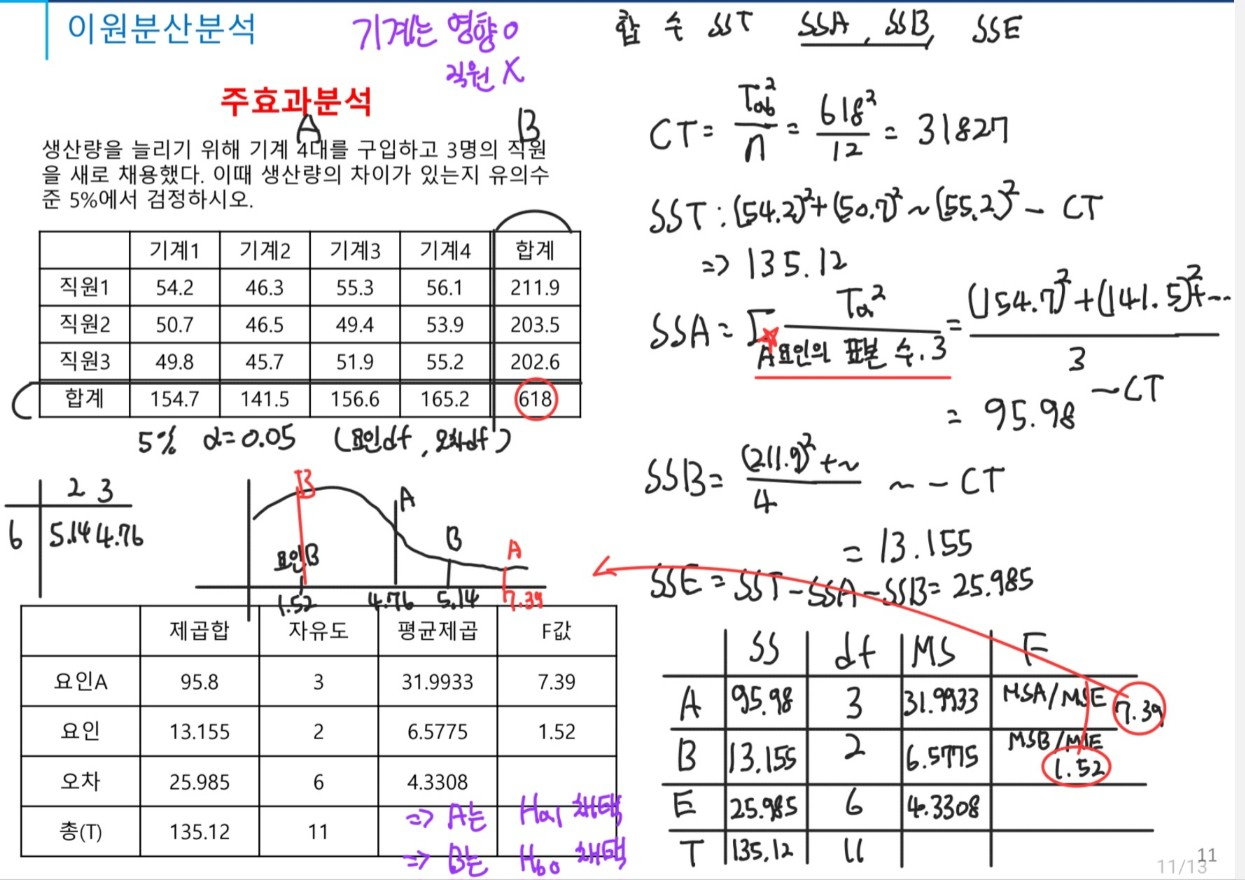 이원분산분석
기계는 영향o
직원 X
주효과분석
A
B
생산량을 늘리기 위해 기계 4대를 구입하고 3명의 직원
을 새로 채용했다. 이때 생산량의 차이가 있는지 유의수
준 5%에서 검정하시오.
기계1 기계2 기계3 기계4 합계
직원1 54.2 46.3 55.3 56.1 211.9
직원2 50.7 46.5 49.4 53.9 203.5
직원3 49.8 45.7 51.9 55.2 202.6
합계 154.7 141.5 156.6 165.2 618
5% α=0.05 (요인df, 오차df)
2 3
6 5.14 4.76
B
A
B
A
요인B
1.52 4.76 5.14 7.39
제곱합 자유도 평균제곱 F값
요인A 95.8 3 31.9933 7.39
요인 13.155 2 6.5775 1.52
오차 25.985 6 4.3308
총(T) 135.12 11
=> A는 Ha1 채택
=> B는 Hb0 채택
합 수 SST SSA, SSB, SSE
CT = Tab²/n = 618²/12 = 31827
SST : (54.2)²+(50.7)² ~ (55.2)² - CT
=> 135.12
SSA = Σ Ta²/A요인의 표본 수.3 = (154.7)²+(141.5)²+…/3
~CT
= 95.98
SSB = (211.9)²+~/4 ~ - CT
= 13.155
SSE = SST-SSA-SSB = 25.985
SS df MS F
A 95.98 3 31.9933 MSA/MSE 7.39
B 13.155 2 6.5775 MSB/MSE 1.52
E 25.985 6 4.3308
T 135.12 11
11
11/13